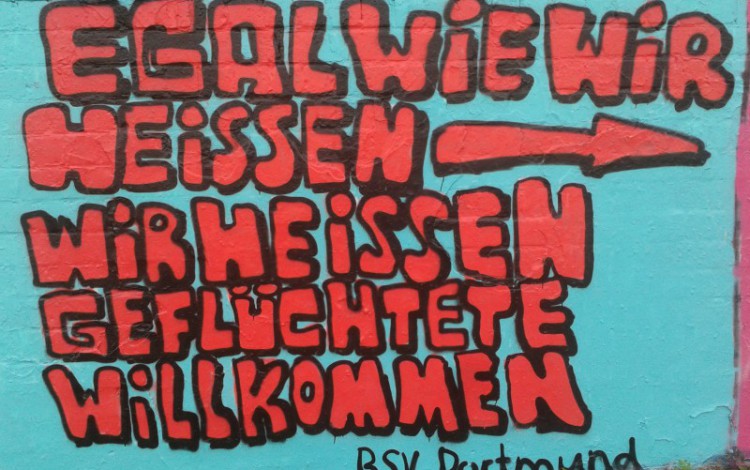 EGAL WiE WiR
HEiSSEN
WiR HEiSSEN
GEFLÜCHTETE
WiLLKOMMEN
BSV Dortmund